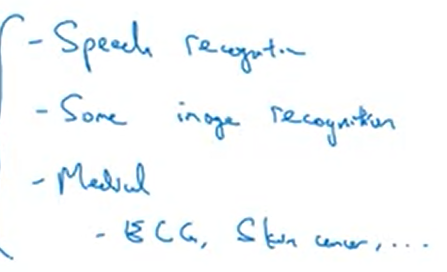 - Speech recognition
- Some image recognition
- Medical
- ECG, Skin cancer, ...